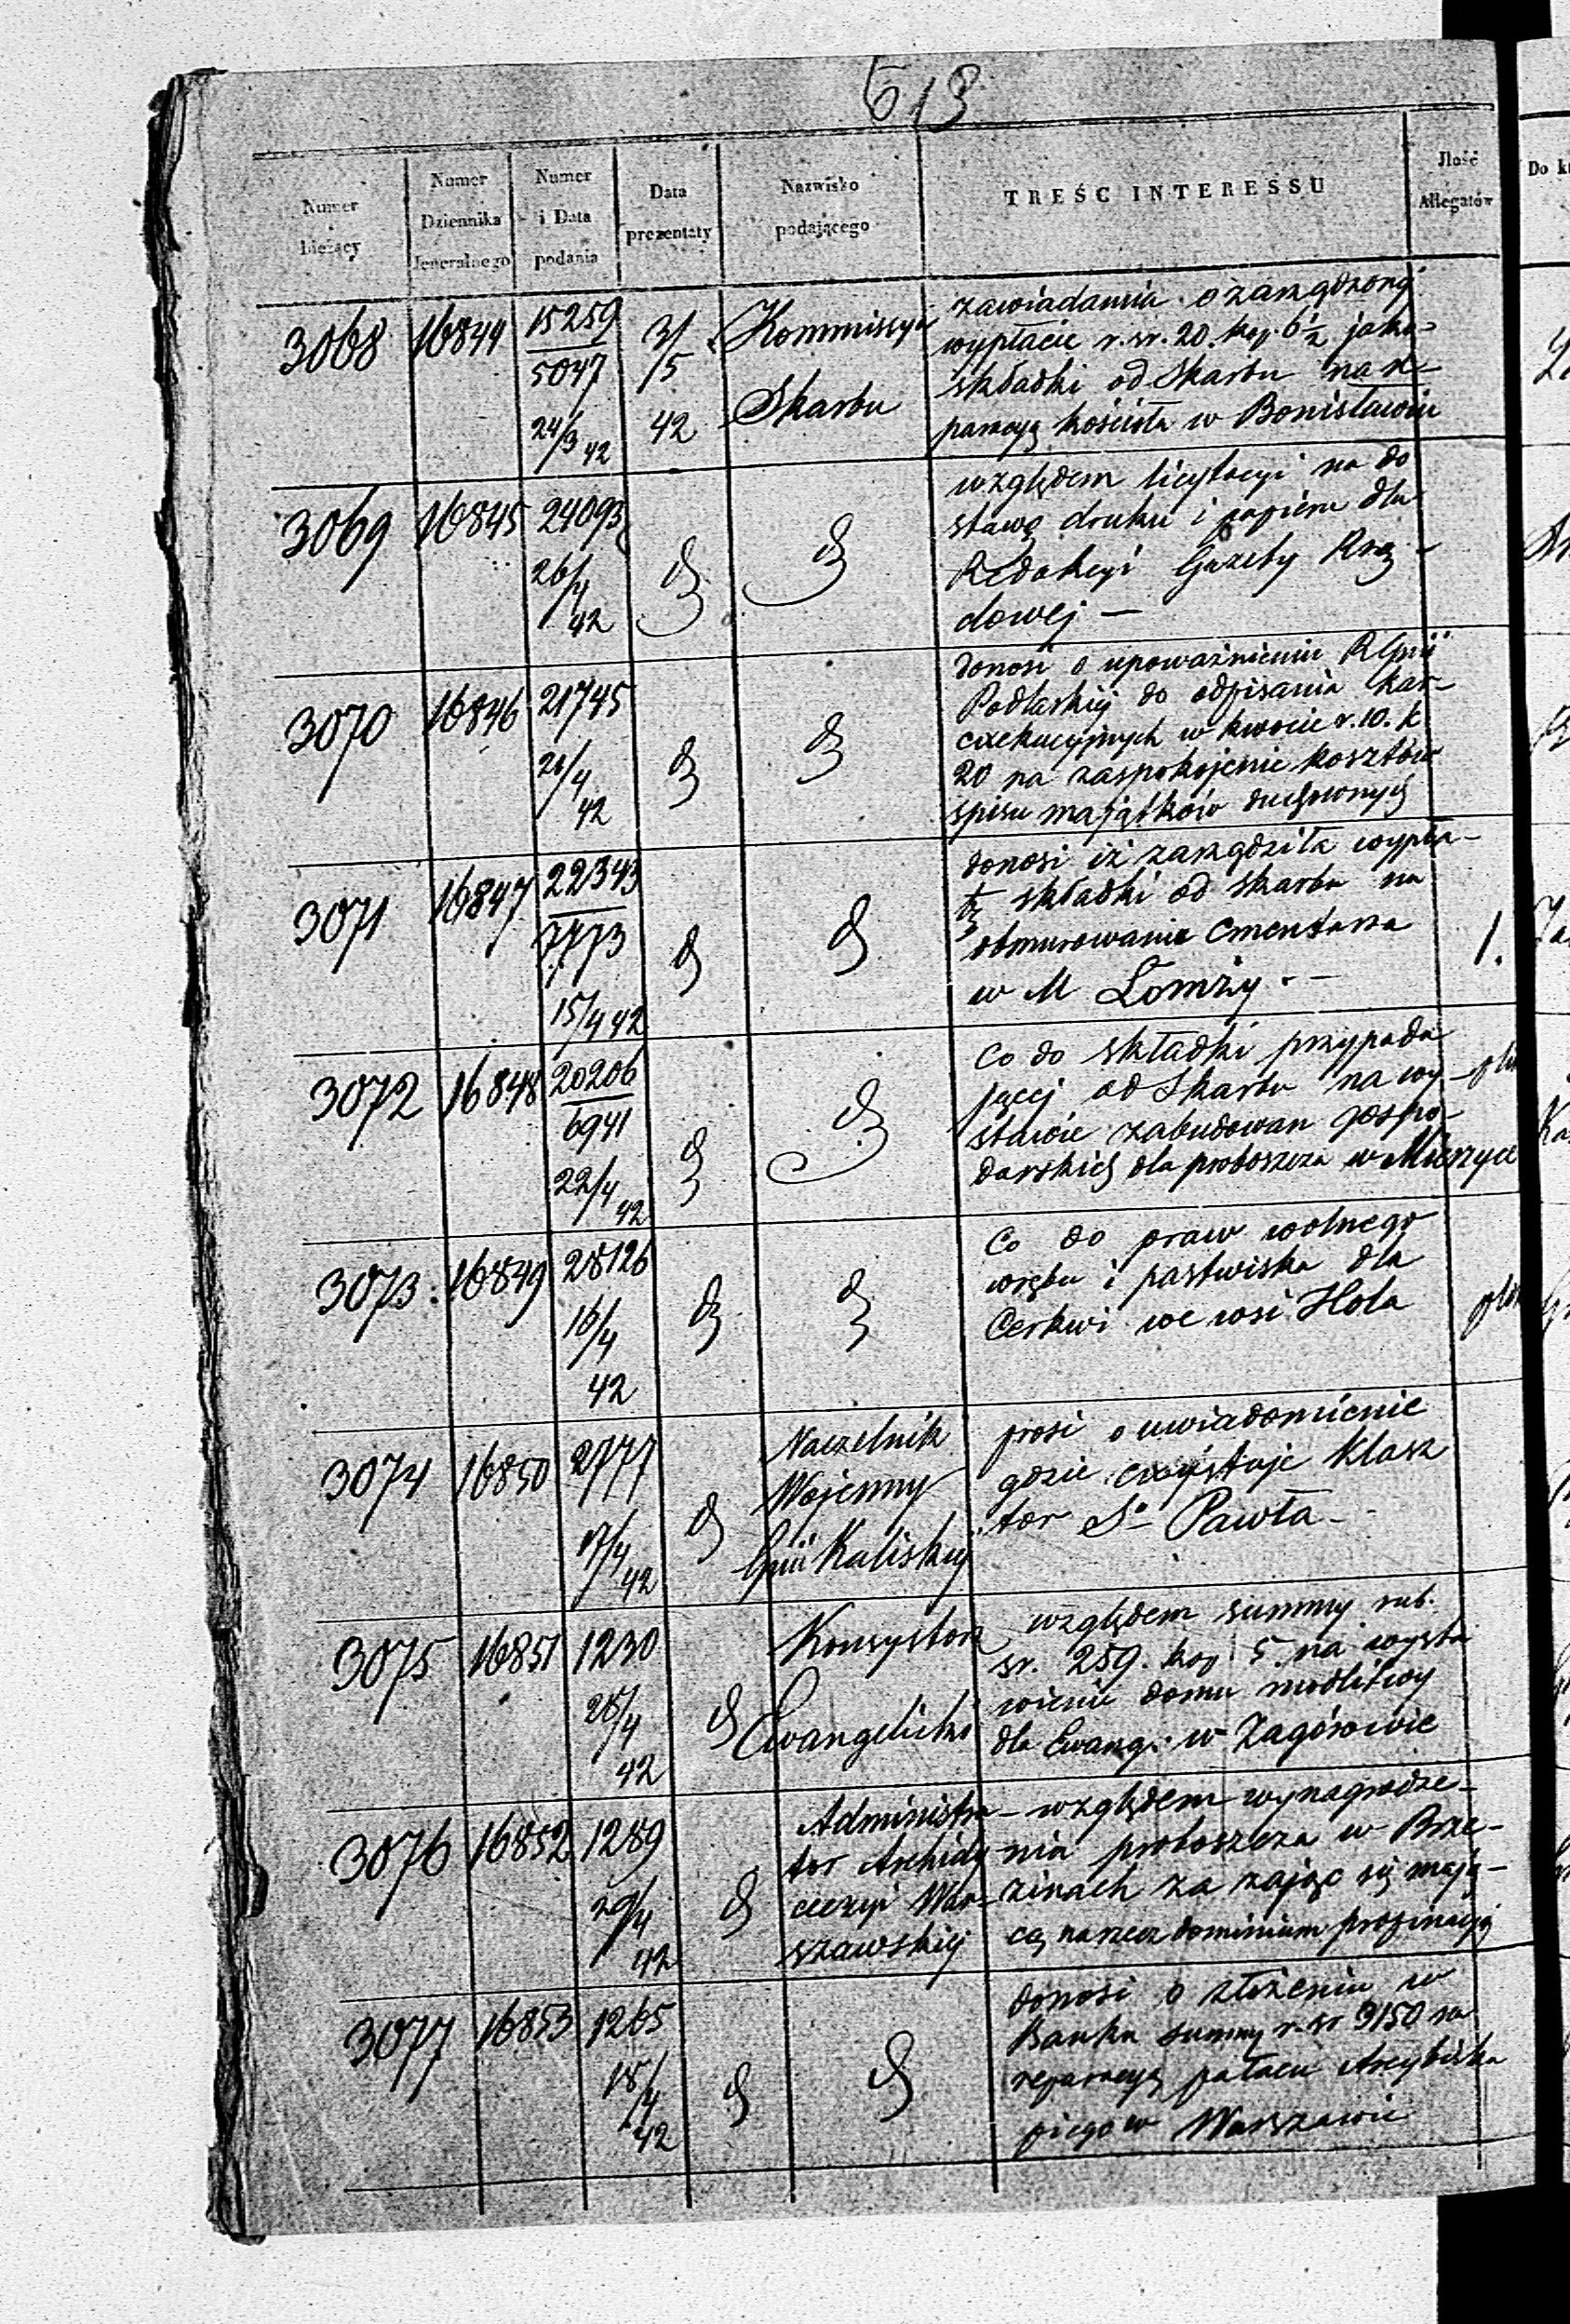 513
Numer bieżący
Numer Dziennika Jeneralnego
Numer i Data podania
Data prezentaty
Nazwisko podającego
TREŚC INTERESSU
Jlość Allegatów
Do
3068 16844 15259 3/5 Kommissya zawiadamia o zarządzonej
5047 42 Skarbu wypłacie r. sr. 20. kop 6½ jako
24/3 42 składki od Skarbu na re-
paracyą kościoła w Bonisławiu
3069 16845 24093 względem licytacyi na do
26/4 stawę druku i papieru dla
42 Redakcyi Gazety Rzą-
dowej —
3070 16846 21745 donosi o upoważnieniu RGnii
21/4 Podlaskiej do odpisania kar-
42 exekucyjnych w kwocie r. 10. k
20 na zaspokojenie kosztów
spisu majątków duchownych
3071 16847 22343 donosi iż zarządziła wypła-
7773 tę składki od skarbu na
15/4 42 obmurowanie cmentarza
w M Łomży. — 1.
3072 16848 20206 Co do składki przypada
6941 jącej od Skarbu na wy-
22/4 42 stawie zabudowan gospo-
darskich dla proboszcza w
3073. 16849 28126 Co do praw wolnego
16/4 wrębu i pastwiska dla
42 Cerkwi we wsi Hola
3074 16850 2777 Naczelnik prosi o uwiadomienie
17/4 Wojenny gdzie exystuje klasz
42 Gnii Kaliskiej tor Sº Pawła —
3075 16851 1230 Konsystorz względem summy rub.
28/4 Ewangelicki sr. 259. kop 5. na wysta
42 wienie domu modlitwy
dla Ewang. w Zagórowie
3076 16852 1289 Administra- względem wynagrodze-
29/4 tor Archidy nia proboszcza w Brze-
42 ecezyi War- zinach za zając się mają-
szawskiej cą na rzecz dominium propinacyą
3077 16853 1265 donosi o złożeniu w
18/4 Banku summy r. sr 3150 na
42 reparacyą pałacu Arcybisku
piego w Warszawie